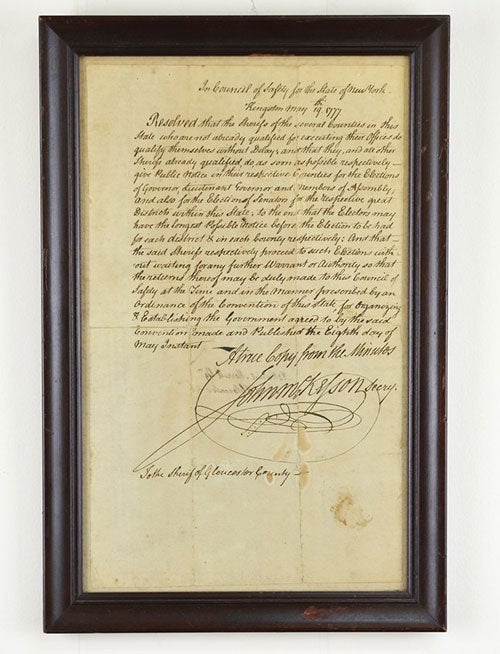 In Council of Safety for the State of New York.
Kingston May 19th 1777
Resolved that the Sherifs of the several Counties in this
State who are not already qualified for executing their Offices do
qualify themselves without Delay; and that they, and all other
Sherifs already qualified, do as soon as possible respectively—
give Public Notice in their respective Counties for the Elections
of Governor, Lieutenant Governor and Members of Assembly;
And also for the Election of Senators for the respective great
Districts within this State; to the end that the Electors may
have the longest Possible Notice before the Election to be had
for each district & in each County respectively: And that—
the said Sherifs respectively proceed to such Elections with
out waiting for any further Warrant or Authority so that
the returns thereof may be duly made to this Council of
Safety at the Time and in the Manner prescribed by an
Ordinance of the Convention of this State for Organizing
& Establishing the Government agreed to by the said
Convention, made and Published the Eighth day of
May Instant.
A true Copy from the Minutes
John McKesson Secry.
To the Sherif of Gloucester County—